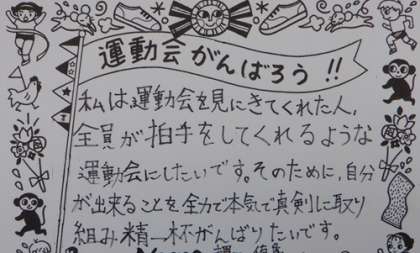 運動会がんばろう!!
私は運動会を見にきてくれた人、
全員が拍手をしてくれるような
運動会にしたいです。そのために、自分
が出来ることを全力で本気で真剣に取り
組み精一杯がんばりたいです。